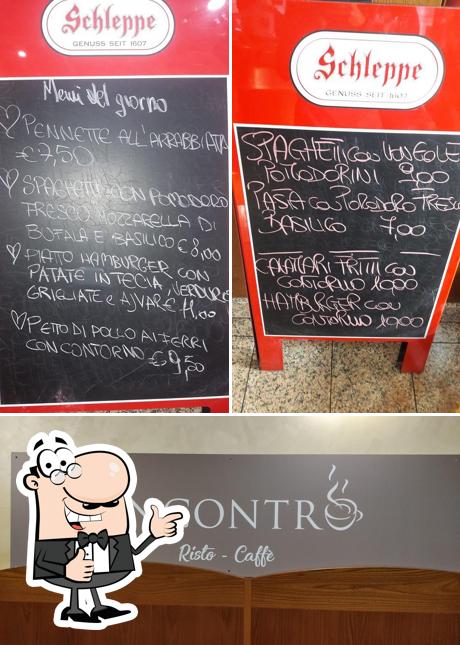 Schleppe
GENUSS SEIT 1607
Menù del giorno
PENNETTE ALL'ARRABBIATA
€ 7,50
SPAGHETTI CON POMODORO
FRESCO MOZZARELLA DI
BUFALA E BASILICO € 8,00
PIATTO HAMBURGER CON
PATATE IN TECIA, VERDURE
GRIGLIATE e AJVAR € 11,00
PETTO DI POLLO AI FERRI
CON CONTORNO € 9,50
Schleppe
GENUSS SEIT 1607
SPAGHETTI con VONGOLE
POMODORINI 9,00
PASTA con POMODORO FRESCO
BASILICO 7,00
CALAMARI FRITTI con
CONTORNO 10,00
HAMBURGER con
CONTORNO 10,00
CONTRO
Ristò - Caffè